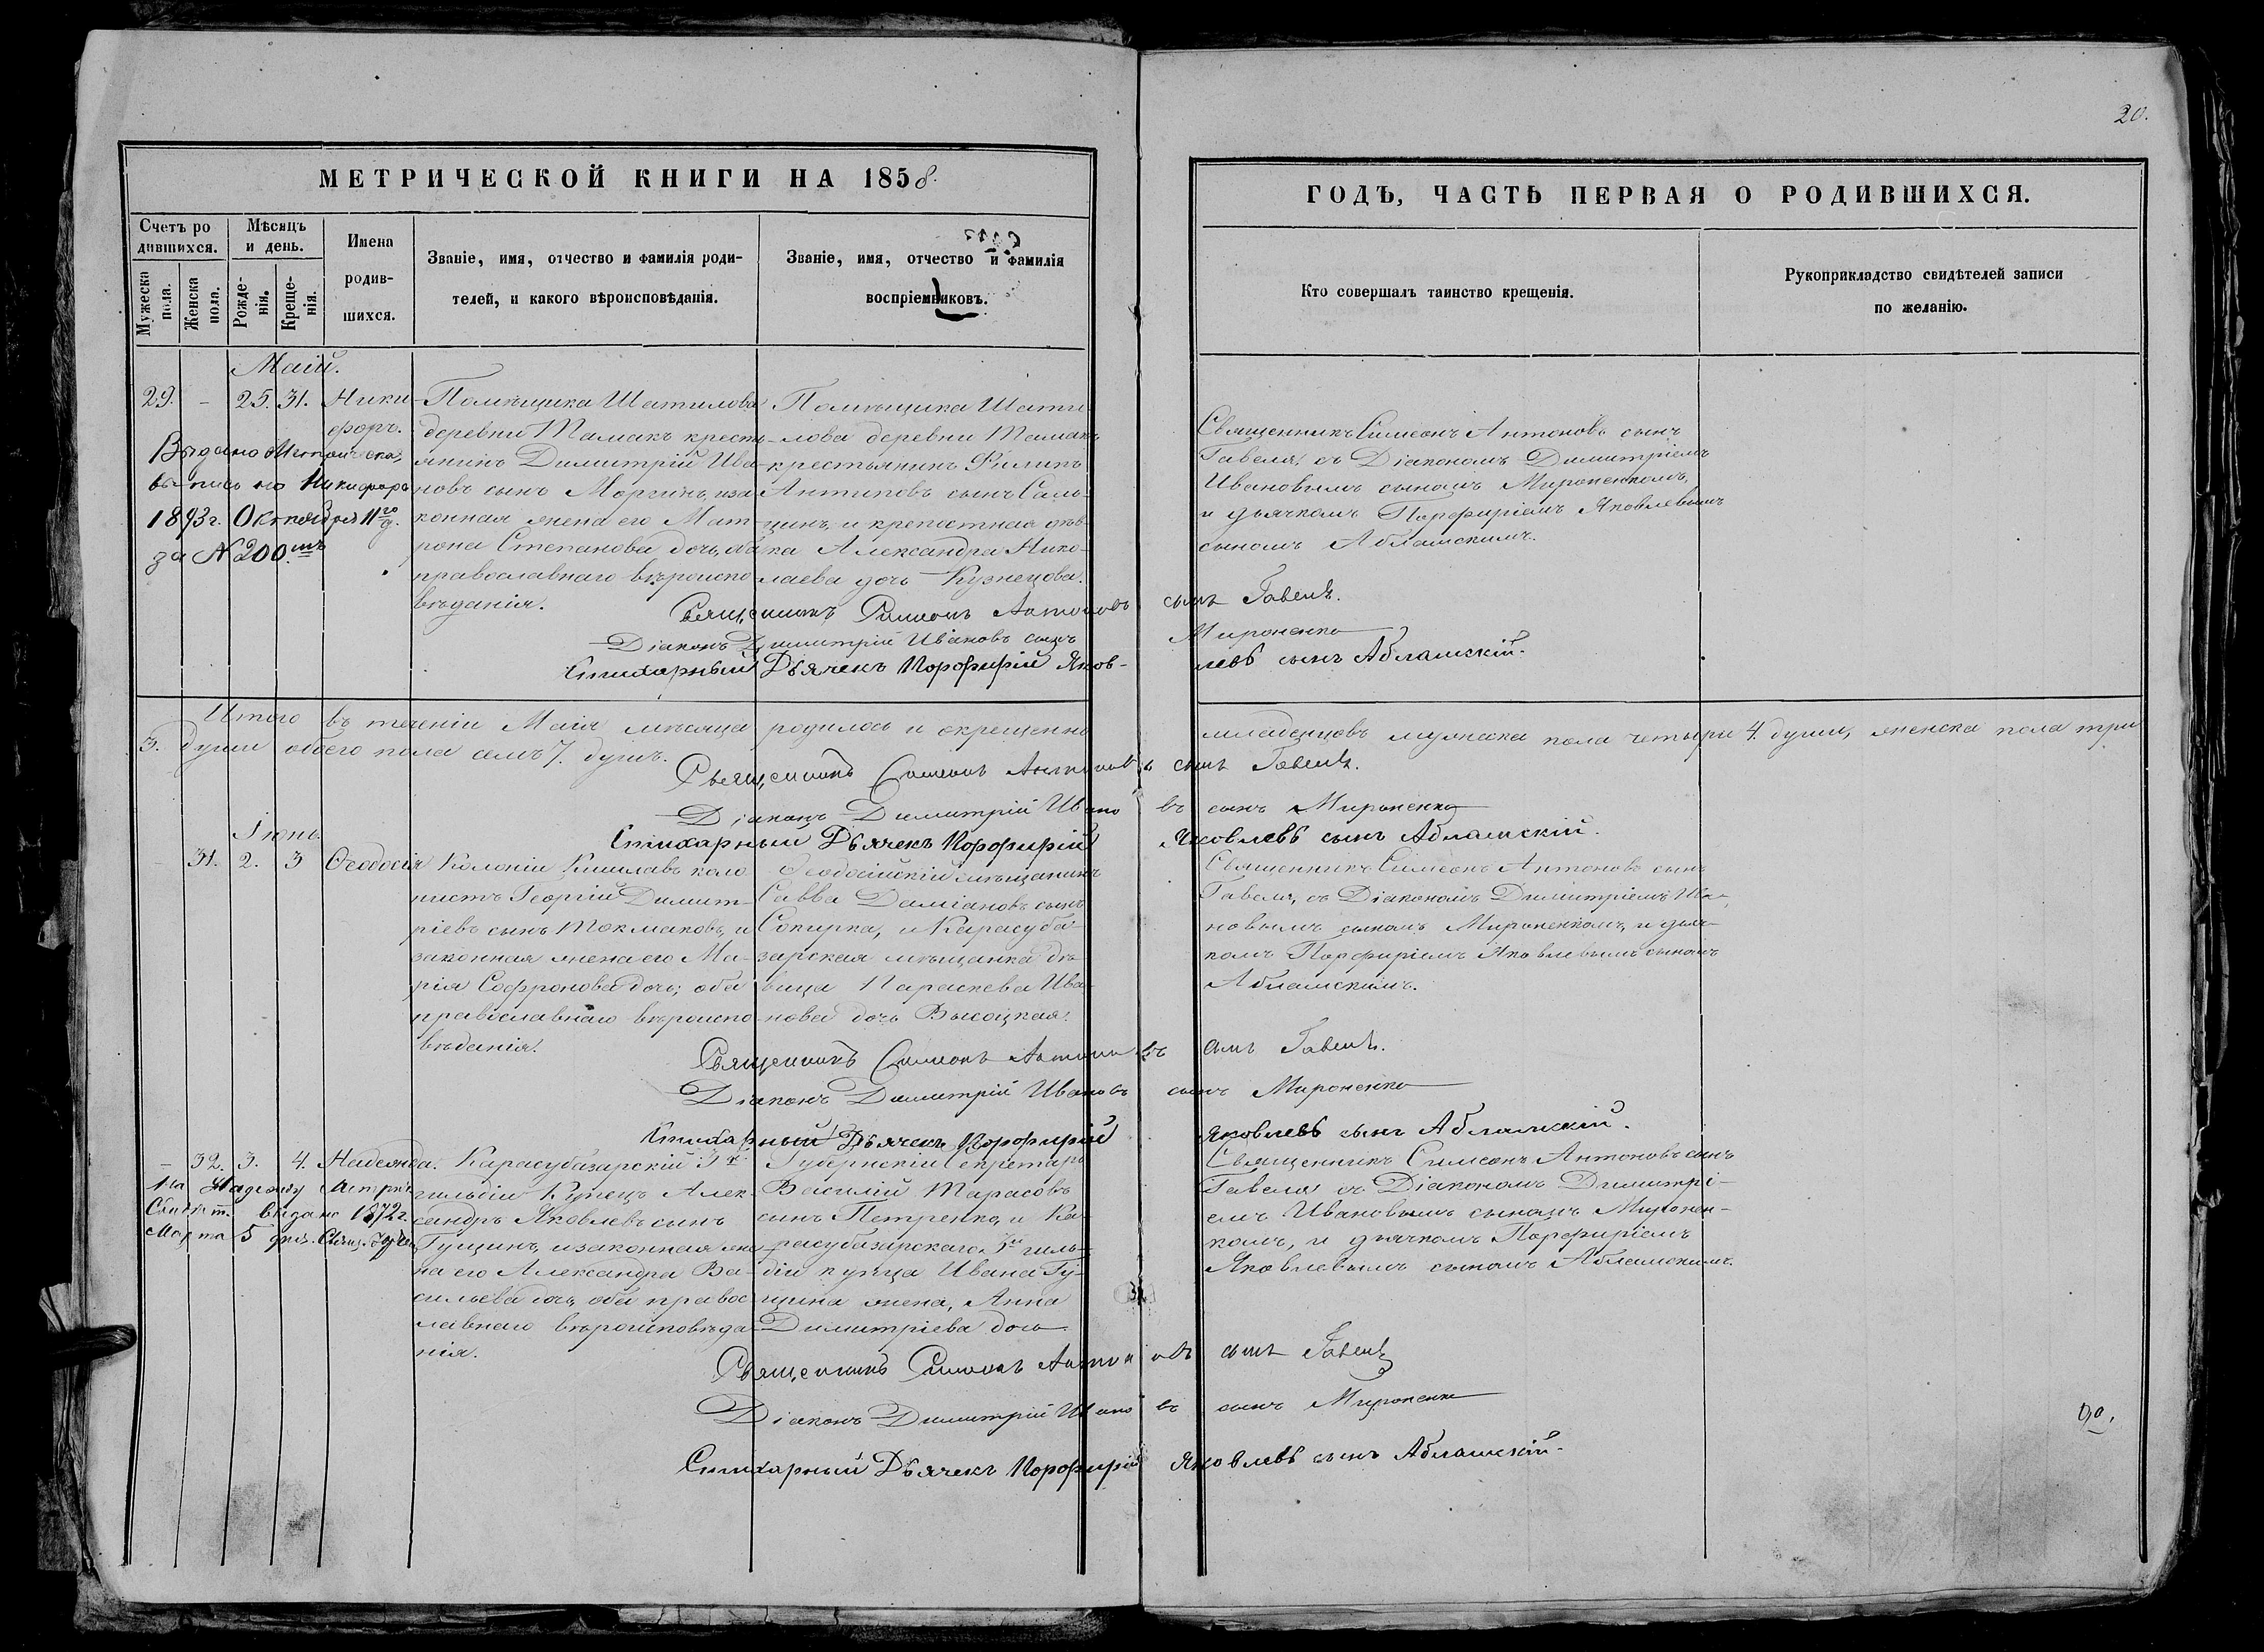 20.
МЕТРИЧЕСКОЙ КНИГИ НА 1858.
ГОДЪ, ЧАСТЬ ПЕРВАЯ О РОДИВШИХСЯ.
Счетъ ро
дившихся.
Мужеска пола.
Женска пола.
Мѣсяцъ
и день.
Рожде-
нія.
Креще-
нія.
Имена
родив-
шихся.
Званіе, имя, отчество и фамилія роди-
телей, и какого вѣроисповѣданія.
Званіе, имя, отчество и фамилія
воспріемниковъ.
Кто совершалъ таинство крещенія.
Рукоприкладство свидѣтелей записи
по желанію.
Маій.
29. - 25. 31. Ники-
форъ.
Выдано Метрич
выпись на Никифора
1893 г. Октября 11го д.
за N 200.
Помѣщика Шатилова
деревни Тамакъ кресть-
янинъ Димитрій Ива-
новъ сынъ Моргинъ, иза
конная жена его Мат-
рона Степанова дочь, оба
православнаго вѣроиспо
вѣданія.
Помѣщика Шати-
лова деревни Тамакъ
крестьянинъ Филипъ
Антиповъ сынъ Саль-
цинъ, и крепостная дѣв-
ка Александра Нико-
лаева дочь Кузнецова.
Священникъ Симеонъ Антоновъ сынъ
Гавеля, съ Діакономъ Димитріемъ
Ивановымъ сыномъ Мироненкомъ,
и дьячкомъ Порфиріемъ Яковлевымъ
сыномъ Абламскимъ.
Священникъ Симеонъ Антоновъ сынъ Гавеля.
Діаконъ Димитрій Ивановъ сынъ Мироненко
Стихарный Дѣячекъ Порфирій Яков-левъ сынъ Абламскій.
Итого въ теченіи Маія мѣсяца родилось и окрещенно младенцовъ мужеска пола четыри 4. души, женска пола три
3. души обоего пола семъ 7. душъ.
Священникъ Симеонъ Антоновъ сынъ Гавеля.
Діаконъ Димитрій Ивановъ сынъ Мироненко
Стихарный Дѣячекъ Порфирій Яковлевъ сынъ Абламскій.
Іюнь.
- 31. 2. 3 Ѳеодосія
Колоніи Кишлавъ коло
нистъ Георгій Димит-
ріевъ сынъ Токмаковъ, и
законная жена его Ма-
рія Софронова дочь; оба
православнаго вѣроиспо
вѣданія.
Ѳеодосійскій мѣщанинъ
Савва Даміановъ сынъ
Сокирка, и Карасуба-
зарская мѣщанка дѣ-
вица Параскева Ива-
нова дочь Высоцкая.
Священникъ Симеонъ Антоновъ сынъ
Гавеля, съ Діакономъ Димитріемъ Ива-
новымъ сыномъ Мироненкомъ, и дьяч-
комъ Порфиріемъ Яковлевымъ сыномъ
Абламскимъ.
Священникъ Симеонъ Антоновъ сынъ Гавеля.
Діаконъ Димитрій Ивановъ сынъ Мироненко
Стихарный Дѣячекъ Порфирій Яковлевъ сынъ Абламскій.
- 32. 3. 4. Надежда.
На Надежду Метрич.
выдано 1872 г.
Марта 5 дня.
Карасубазарскій 3й
гильдіи Купецъ Алек-
сандръ Яковлевъ сынъ
Гущинъ, изаконная же-
на его Александра Ва-
сильева дочь, оба правос
лавнаго вѣроисповѣда
нія.
Губернскій Секретарь
Василій Тарасовъ
сынъ Петренко, и Ка-
расубазарскаго 3й гиль-
діи купца Ивана Гу-
щина жена, Анна
Димитріева дочь
Священникъ Симеонъ Антоновъ сынъ
Гавеля съ Діакономъ Димитрі-
емъ Ивановымъ сыномъ Миронен-
комъ, и дьячкомъ Порфиріемъ
Яковлевымъ сыномъ Абламскимъ.
Священникъ Симеонъ Антоновъ сынъ Гавеля
Діаконъ Димитрій Ивановъ сынъ Мироненко
Стихарный Дѣячекъ Порфирій Яковлевъ сынъ Абламскій.